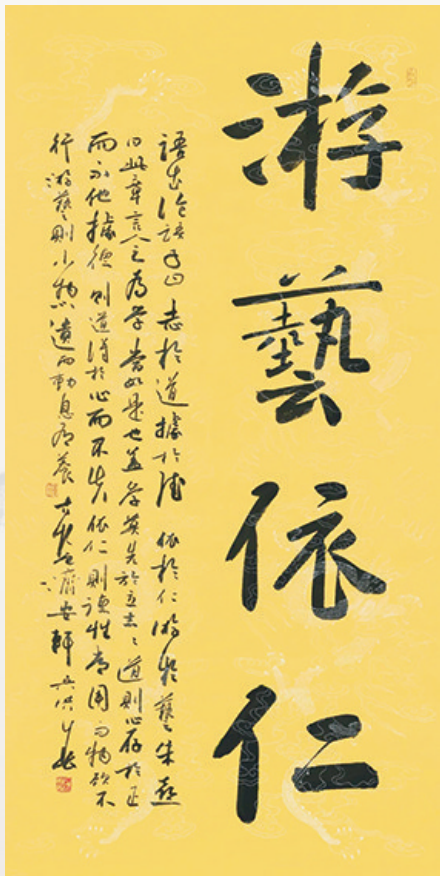 游藝依仁
語出論語子曰志於道據於德依於仁游於藝朱熹
曰此章言人之為學當如是也蓋學莫先於立志〻道則心存於正
而不他據德則道得於心而不失依仁則德性常用而物欲不
行游藝則小物不遺而動息有養 濟安軒